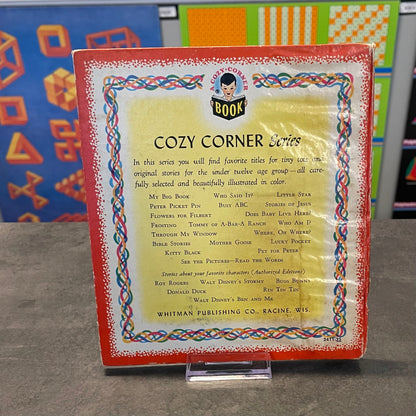 A COZY-CORNER
BOOK
COZY CORNER Series
In this series you will find favorite titles for tiny tots and
original stories for the under twelve age group—all care-
fully selected and beautifully illustrated in color.
My Big Book Who Said It? Little Star
Peter Picket Pin Busy ABC Stories of Jesus
Flowers for Filbert Does Baby Live Here?
Frosting Tommy of A-Bar-A Ranch Who Am I?
Through My Window Where, Oh Where?
Bible Stories Mother Goose Lucky Pocket
Kitty Black Pet for Peter
See the Pictures—Read the Words
Stories about your favorite characters (Authorized Editions)
Roy Rogers Walt Disney's Stormy Bugs Bunny
Donald Duck Rin Tin Tin
Walt Disney's Ben and Me
WHITMAN PUBLISHING CO., RACINE, WIS.